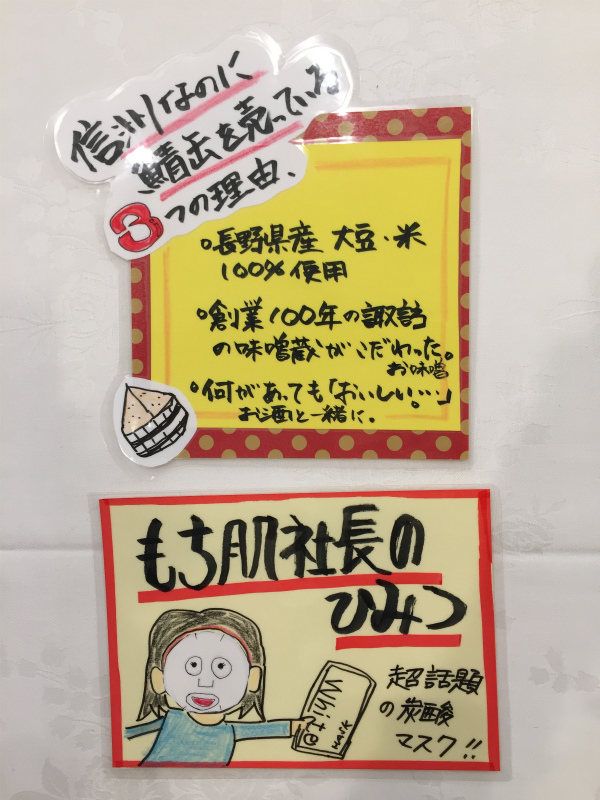 信州なのに
鯖缶を売っている
3つの理由、
•長野県産 大豆・米
100%使用
•創業100年の諏訪
の味噌蔵がこだわった。
お味噌
•何があっても「おいしい…」
お酒と一緒に。
もち肌社長の
ひみつ
超話題
の炭酸
マスク!!
Whit@
MASK